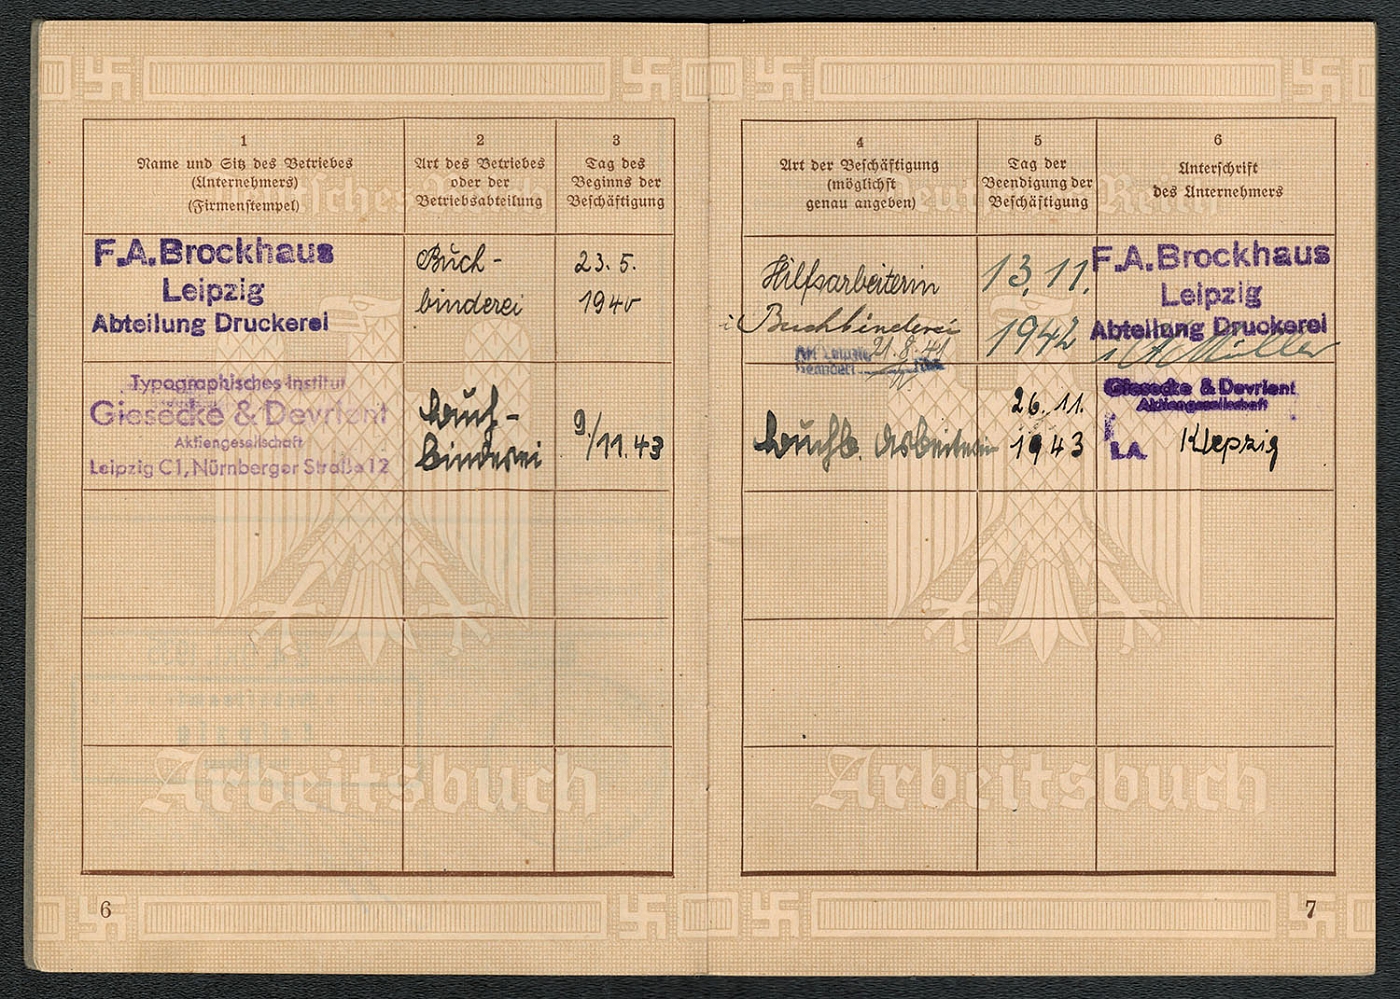 1
Name und Sitz des Betriebes
(Unternehmers)
(Firmenstempel)
2
Art des Betriebes
oder der
Betriebsabteilung
3
Tag des
Beginns der
Beschäftigung
4
Art der Beschäftigung
(möglichst
genau angeben)
5
Tag der
Beendigung der
Beschäftigung
6
Unterschrift
des Unternehmers
Deutsches Reich
Deutsches Reich
F.A.Brockhaus
Leipzig
Abteilung Druckerei
Buch-
binderei
23.5.
1940
Hilfsarbeiterin
i. Buchbinderei
21.8.41
13.11.
1942
F.A.Brockhaus
Leipzig
Abteilung Druckerei
Müller
Typographisches Institut
Giesecke & Devrient
Aktiengesellschaft
Leipzig C1, Nürnberger Straße 12
Buch-
binderei
9./11.43
Buchb. Arbeiterin
26.11.
1943
Giesecke & Devrient
Aktiengesellschaft
I.A. Klepzig
Arbeitsbuch
Arbeitsbuch
6
7